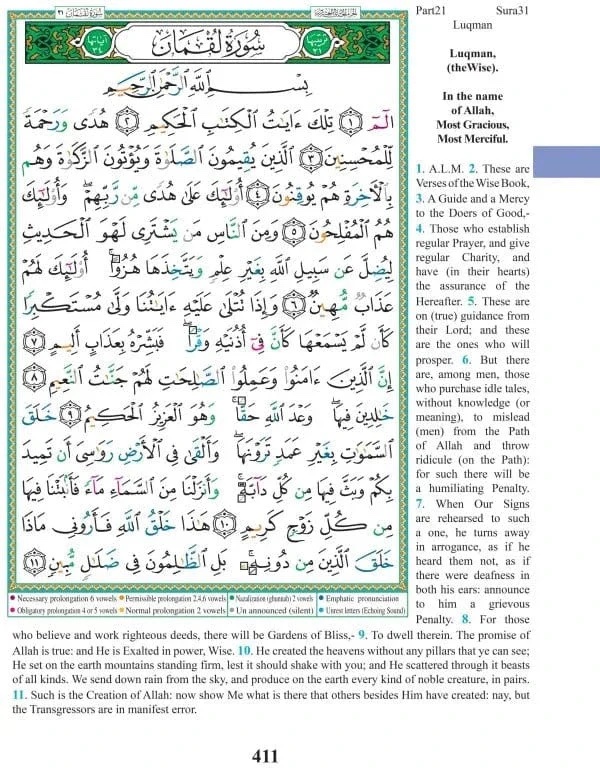 سورة لقمان ٣١
Part21 Sura31
Luqman
ترتيبها ٣١
سُورَةُ لُقْمَانَ
آياتها ٣٤
Luqman,
(theWise).
In the name
of Allah,
Most Gracious,
Most Merciful.
بِسْمِ ٱللَّهِ ٱلرَّحْمَٰنِ ٱلرَّحِيمِ
الٓمٓ ١ تِلْكَ ءَايَٰتُ ٱلْكِتَٰبِ ٱلْحَكِيمِ ٢ هُدًى وَرَحْمَةً
لِّلْمُحْسِنِينَ ٣ ٱلَّذِينَ يُقِيمُونَ ٱلصَّلَوٰةَ وَيُؤْتُونَ ٱلزَّكَوٰةَ وَهُم
بِٱلْءَاخِرَةِ هُمْ يُوقِنُونَ ٤ أُو۟لَٰٓئِكَ عَلَىٰ هُدًى مِّن رَّبِّهِمْ ۖ وَأُو۟لَٰٓئِكَ
هُمُ ٱلْمُفْلِحُونَ ٥ وَمِنَ ٱلنَّاسِ مَن يَشْتَرِى لَهْوَ ٱلْحَدِيثِ
لِيُضِلَّ عَن سَبِيلِ ٱللَّهِ بِغَيْرِ عِلْمٍ وَيَتَّخِذَهَا هُزُوًا ۚ أُو۟لَٰٓئِكَ لَهُمْ
عَذَابٌ مُّهِينٌ ٦ وَإِذَا تُتْلَىٰ عَلَيْهِ ءَايَٰتُنَا وَلَّىٰ مُسْتَكْبِرًا
كَأَن لَّمْ يَسْمَعْهَا كَأَنَّ فِىٓ أُذُنَيْهِ وَقْرًا ۖ فَبَشِّرْهُ بِعَذَابٍ أَلِيمٍ ٧
إِنَّ ٱلَّذِينَ ءَامَنُوا۟ وَعَمِلُوا۟ ٱلصَّٰلِحَٰتِ لَهُمْ جَنَّٰتُ ٱلنَّعِيمِ ٨
خَٰلِدِينَ فِيهَا ۖ وَعْدَ ٱللَّهِ حَقًّا ۚ وَهُوَ ٱلْعَزِيزُ ٱلْحَكِيمُ ٩ خَلَقَ
ٱلسَّمَٰوَٰتِ بِغَيْرِ عَمَدٍ تَرَوْنَهَا ۖ وَأَلْقَىٰ فِى ٱلْأَرْضِ رَوَٰسِىَ أَن تَمِيدَ
بِكُمْ وَبَثَّ فِيهَا مِن كُلِّ دَآبَّةٍ ۚ وَأَنزَلْنَا مِنَ ٱلسَّمَآءِ مَآءً فَأَنۢبَتْنَا فِيهَا
مِن كُلِّ زَوْجٍ كَرِيمٍ ١٠ هَٰذَا خَلْقُ ٱللَّهِ فَأَرُونِى مَاذَا
خَلَقَ ٱلَّذِينَ مِن دُونِهِۦ ۚ بَلِ ٱلظَّٰلِمُونَ فِى ضَلَٰلٍ مُّبِينٍ ١١
Necessary prolongation 6 vowels Permissible prolongation 2,4,6 vowels Nazalization (ghunnah) 2 vowels Emphatic pronunciation
Obligatory prolongation 4 or 5 vowels Normal prolongation 2 vowels Un announced (silent) Unrest letters (Echoing Sound)
1. A.L.M. 2. These are
Verses of the Wise Book,
3. A Guide and a Mercy
to the Doers of Good,-
4. Those who establish
regular Prayer, and give
regular Charity, and
have (in their hearts)
the assurance of the
Hereafter. 5. These are
on (true) guidance from
their Lord; and these
are the ones who will
prosper. 6. But there
are, among men, those
who purchase idle tales,
without knowledge (or
meaning), to mislead
(men) from the Path
of Allah and throw
ridicule (on the Path):
for such there will be
a humiliating Penalty.
7. When Our Signs
are rehearsed to such
a one, he turns away
in arrogance, as if he
heard them not, as if
there were deafness in
both his ears: announce
to him a grievous
Penalty. 8. For those
who believe and work righteous deeds, there will be Gardens of Bliss,- 9. To dwell therein. The promise of
Allah is true: and He is Exalted in power, Wise. 10. He created the heavens without any pillars that ye can see;
He set on the earth mountains standing firm, lest it should shake with you; and He scattered through it beasts
of all kinds. We send down rain from the sky, and produce on the earth every kind of noble creature, in pairs.
11. Such is the Creation of Allah: now show Me what is there that others besides Him have created: nay, but
the Transgressors are in manifest error.
411